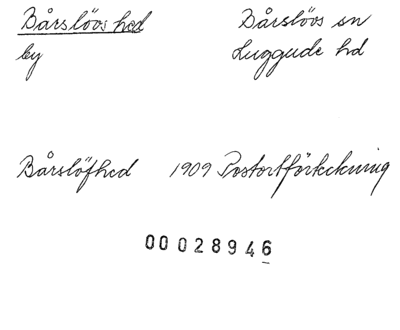 Bårslövs hed Bårslövs sn
by Luggude hd
Bårslöfhed 1909 Postortförteckning
00 028946